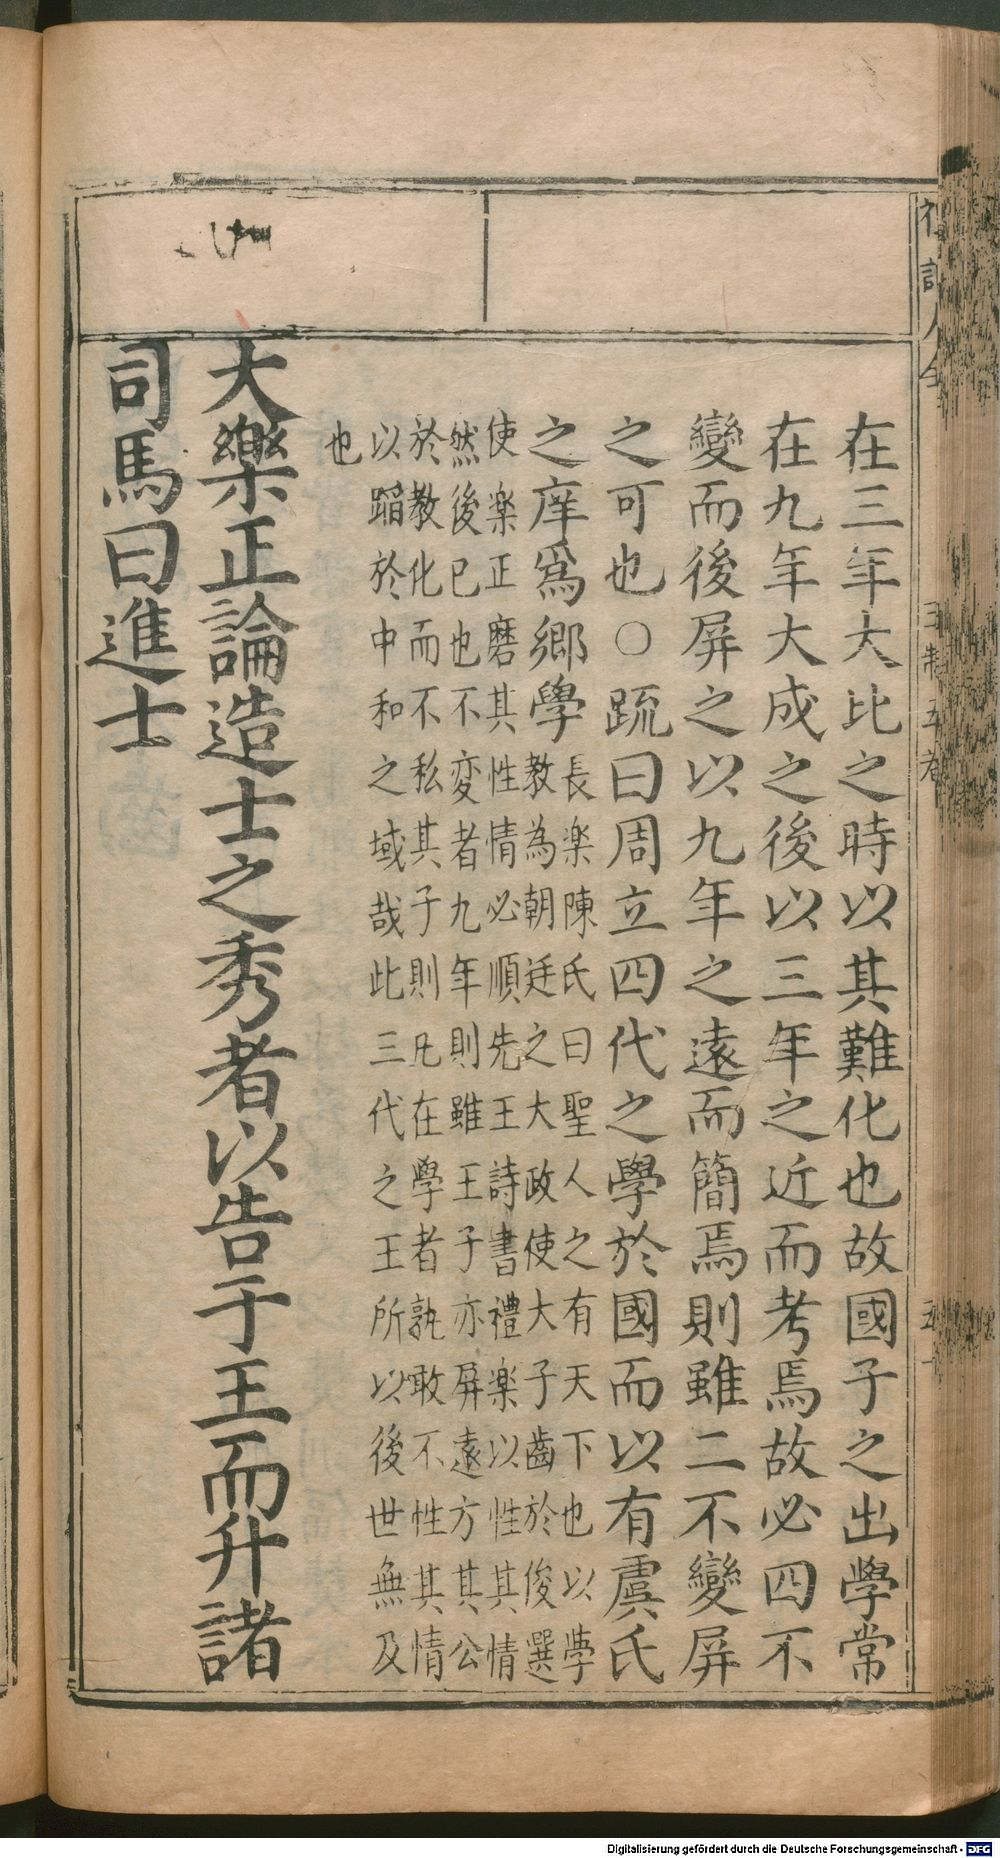 在三年大比之時以其難化也故國子之出學常
在九年大成之後以三年之近而考焉故必四不
變而後屏之以九年之遠而簡焉則雖二不變屏
之可也○疏曰周立四代之學於國而以有虞氏
之庠爲鄉學
長楽陳氏曰聖人之有天下也以斈
教為朝廷之大政使大子齒於俊選
使楽正磨其性情必順先王詩書禮楽以性其情
然後已也不変者九年則雖王子亦屏遠方其公
於教化而不私其子則凡在學者孰敢不性其情
以蹈於中和之域哉此三代之王所以後世無及
也
大樂正論造士之秀者以告于王而升諸
司馬曰進士
Digitalisierung gefördert durch die Deutsche Forschungsgemeinschaft - DFG